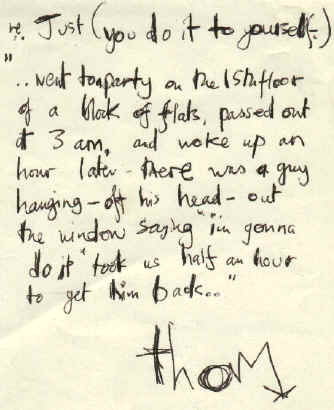 re. Just (you do it to yourself.)
"
..went to a party on the 15th floor
of a block of flats, passed out
at 3 am, and woke up an
hour later - there was a guy
hanging - off his head - out
the window saying "i'm gonna
do it" took us half an hour
to get him back.."
thom